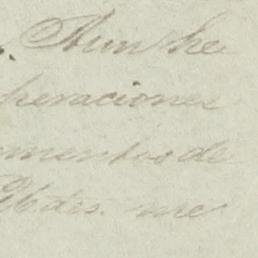 Aun he
peraciones
mentos de
Uds. me